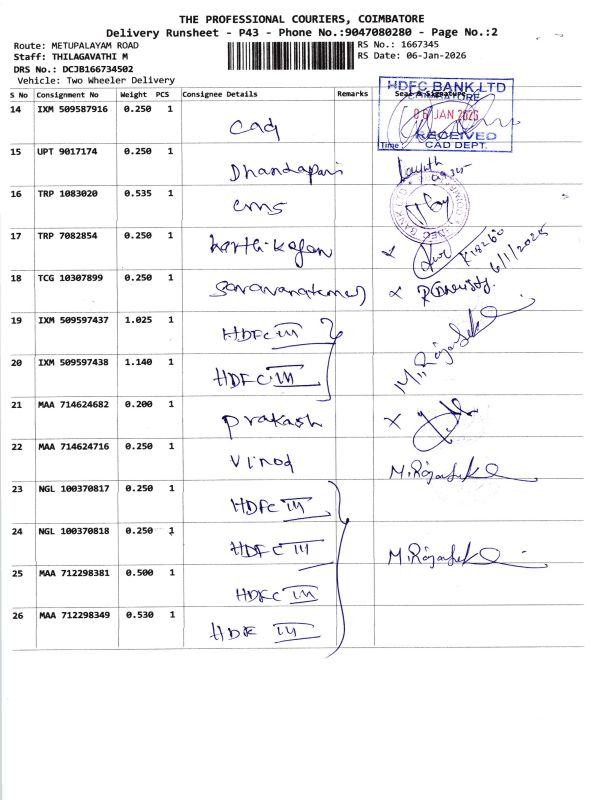 THE PROFESSIONAL COURIERS, COIMBATORE
Delivery Runsheet - P43 - Phone No.:9047080280 - Page No.:2
Route: METUPALAYAM ROAD
Staff: THILAGAVATHI M
DRS No.: DCJB166734502
Vehicle: Two Wheeler Delivery
RS No.: 1667345
RS Date: 06-Jan-2026
S No Consignment No Weight PCS Consignee Details Remarks Seal & Signature
HDFC BANK LTD
COIMBATORE
06 JAN 2026
RECEIVED
Time: CAD DEPT.
14 IXM 509587916 0.250 1 cad
15 UPT 9017174 0.250 1 Dhandapani
16 TRP 1083020 0.535 1 cms
17 TRP 7082854 0.250 1 karthikafan
18 TCG 10307899 0.250 1 Saravanakumar
19 IXM 509597437 1.025 1 HDFC III
20 IXM 509597438 1.140 1 HDFC III
21 MAA 714624682 0.200 1 prakash
22 MAA 714624716 0.250 1 vinod
23 NGL 100370817 0.250 1 HDFC III
24 NGL 100370818 0.250 1 HDFC III
25 MAA 712298381 0.500 1 HDFC III
26 MAA 712298349 0.530 1 HDF III